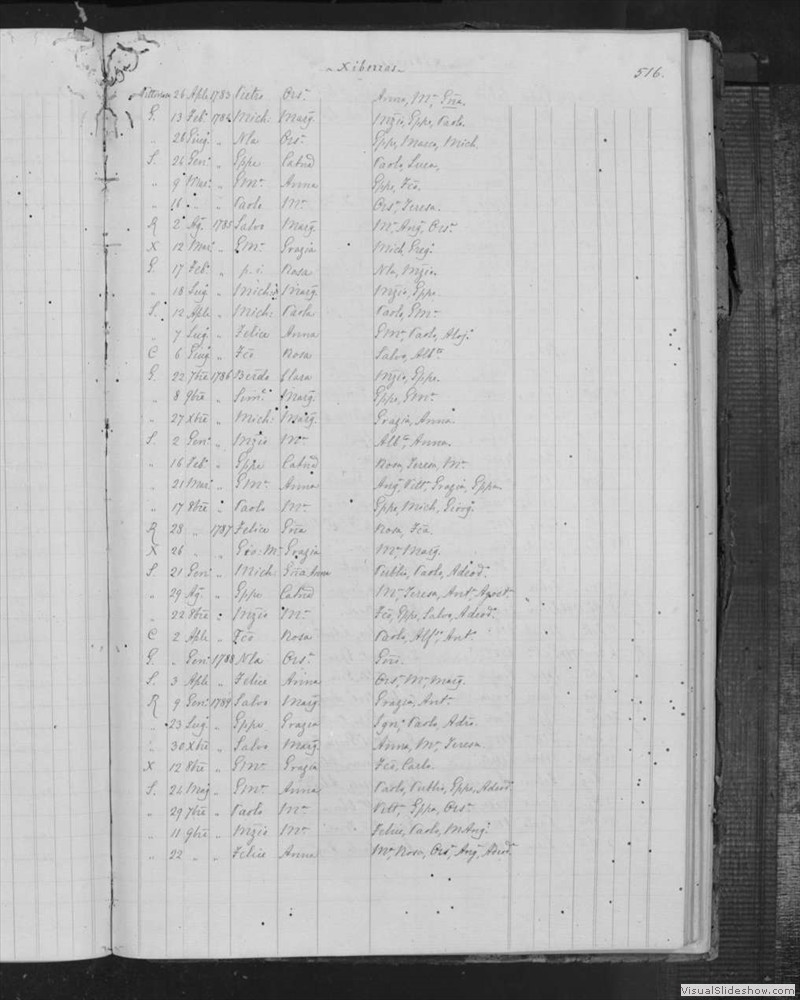 Xiberras
516.
Vittoriosa 26 Aple 1783 Pietro Ors.ª Anna, M.ª, Gña.
G. 13 Feb.º 1784 Mich: Marg. Mzio, Gppe, Paolo.
" 28 Giug. " Nla Ors.ª Gppe, Marco, Mich.
S. 26 Gen.º " Gppe Catnª Paolo, Luca,
" 9 Mar. " G.M.ª Anna Gppe, Fco.
" 16 " " Paolo M.ª Ors.ª Teresa.
R 2 Ag. 1785 Salvo Marg. M.ª, Ang., Ors.ª
X 12 Mar. " G.M.ª Grazia Mich, Greg.
G. 17 Feb.º " p. i. Rosa Nla, Mzio.
" 18 Lug. " Mich: Marg. Mzio, Gppe.
S. 12 Aple " Mich: Paola Paolo, G.M.ª
" 7 Lug. " Felice Anna G.M.ª, Paolo, Aloj.
C 6 Giug. " Fco Rosa Salvo, Alb.
G. 22 7bre 1786 Clara Mzio, Gppe.
" 8 9bre " Marg. Gppe, G.M.ª
" 27 Xbre " Mich: Marg. Grazia, Anna.
S. 2 Gen.º " Mzio M.ª Alb., Anna.
" 16 Feb.º " Gppe Catnª Rosa, Teresa, M.ª
" 21 Mar. " G.M.ª Anna Ang, Vitt, Grazia, Gppa.
" 17 8bre " Paolo M.ª Gppe, Mich, Giorg.
R 28 " 1787 Felice Gña Rosa, Fca.
X 26 " " Gio: M.ª Grazia M.ª Marg.
S. 21 Gen.º " Mich: Gña Anna Publio, Paolo, Adeod.
" 29 Ag. " Gppe Catnª M.ª, Teresa, Ant.
" 22 8bre " Mzio M.ª Fco, Gppe, Salvo, Adeod.
C 2 Aple " Fco Rosa Paolo, Alf., Ant.
G. " Gen.º 1788 Nla Ors.ª
S. 3 Aple " Felice Anna Ors.ª, M.ª, Marg.
R 9 Gen.º 1789 Salvo Marg. Grazia, Ant.
" 23 Lug. " Gppe Grazia Ign., Paolo
" 30 Xbre " Salvo Marg. Anna, M.ª, Teresa.
X 12 8bre " G.M.ª Grazia Fco, Carlo.
S. 24 Mag. " G.M.ª Anna Paolo, Publio, Gppe, Adeod.
" 29 7bre " Paolo M.ª Vitt, Gppa, Ors.ª
" 11 9bre " Mzio M.ª Felice, Paolo, M.Ang.
" 22 " " Felice Anna M.ª, Rosa, Ors.ª, Ang, Adeod.
VisualSlideshow.com